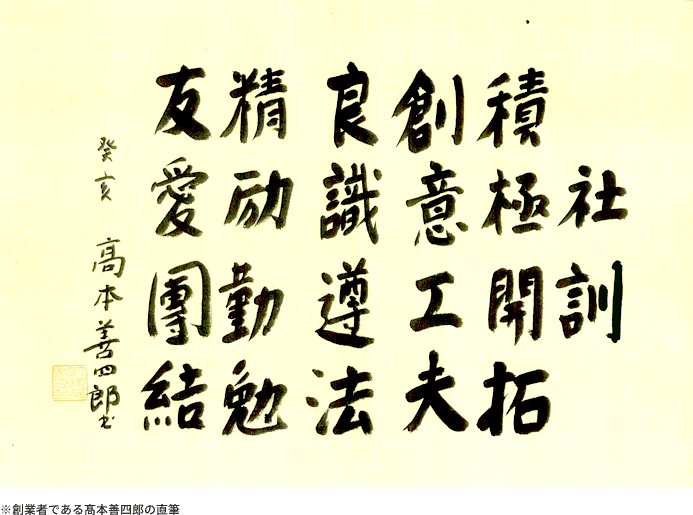 社訓
積極開拓
創意工夫
良識遵法
精励勤勉
友愛團結
癸亥 髙本善四郎書
※創業者である髙本善四郎の直筆